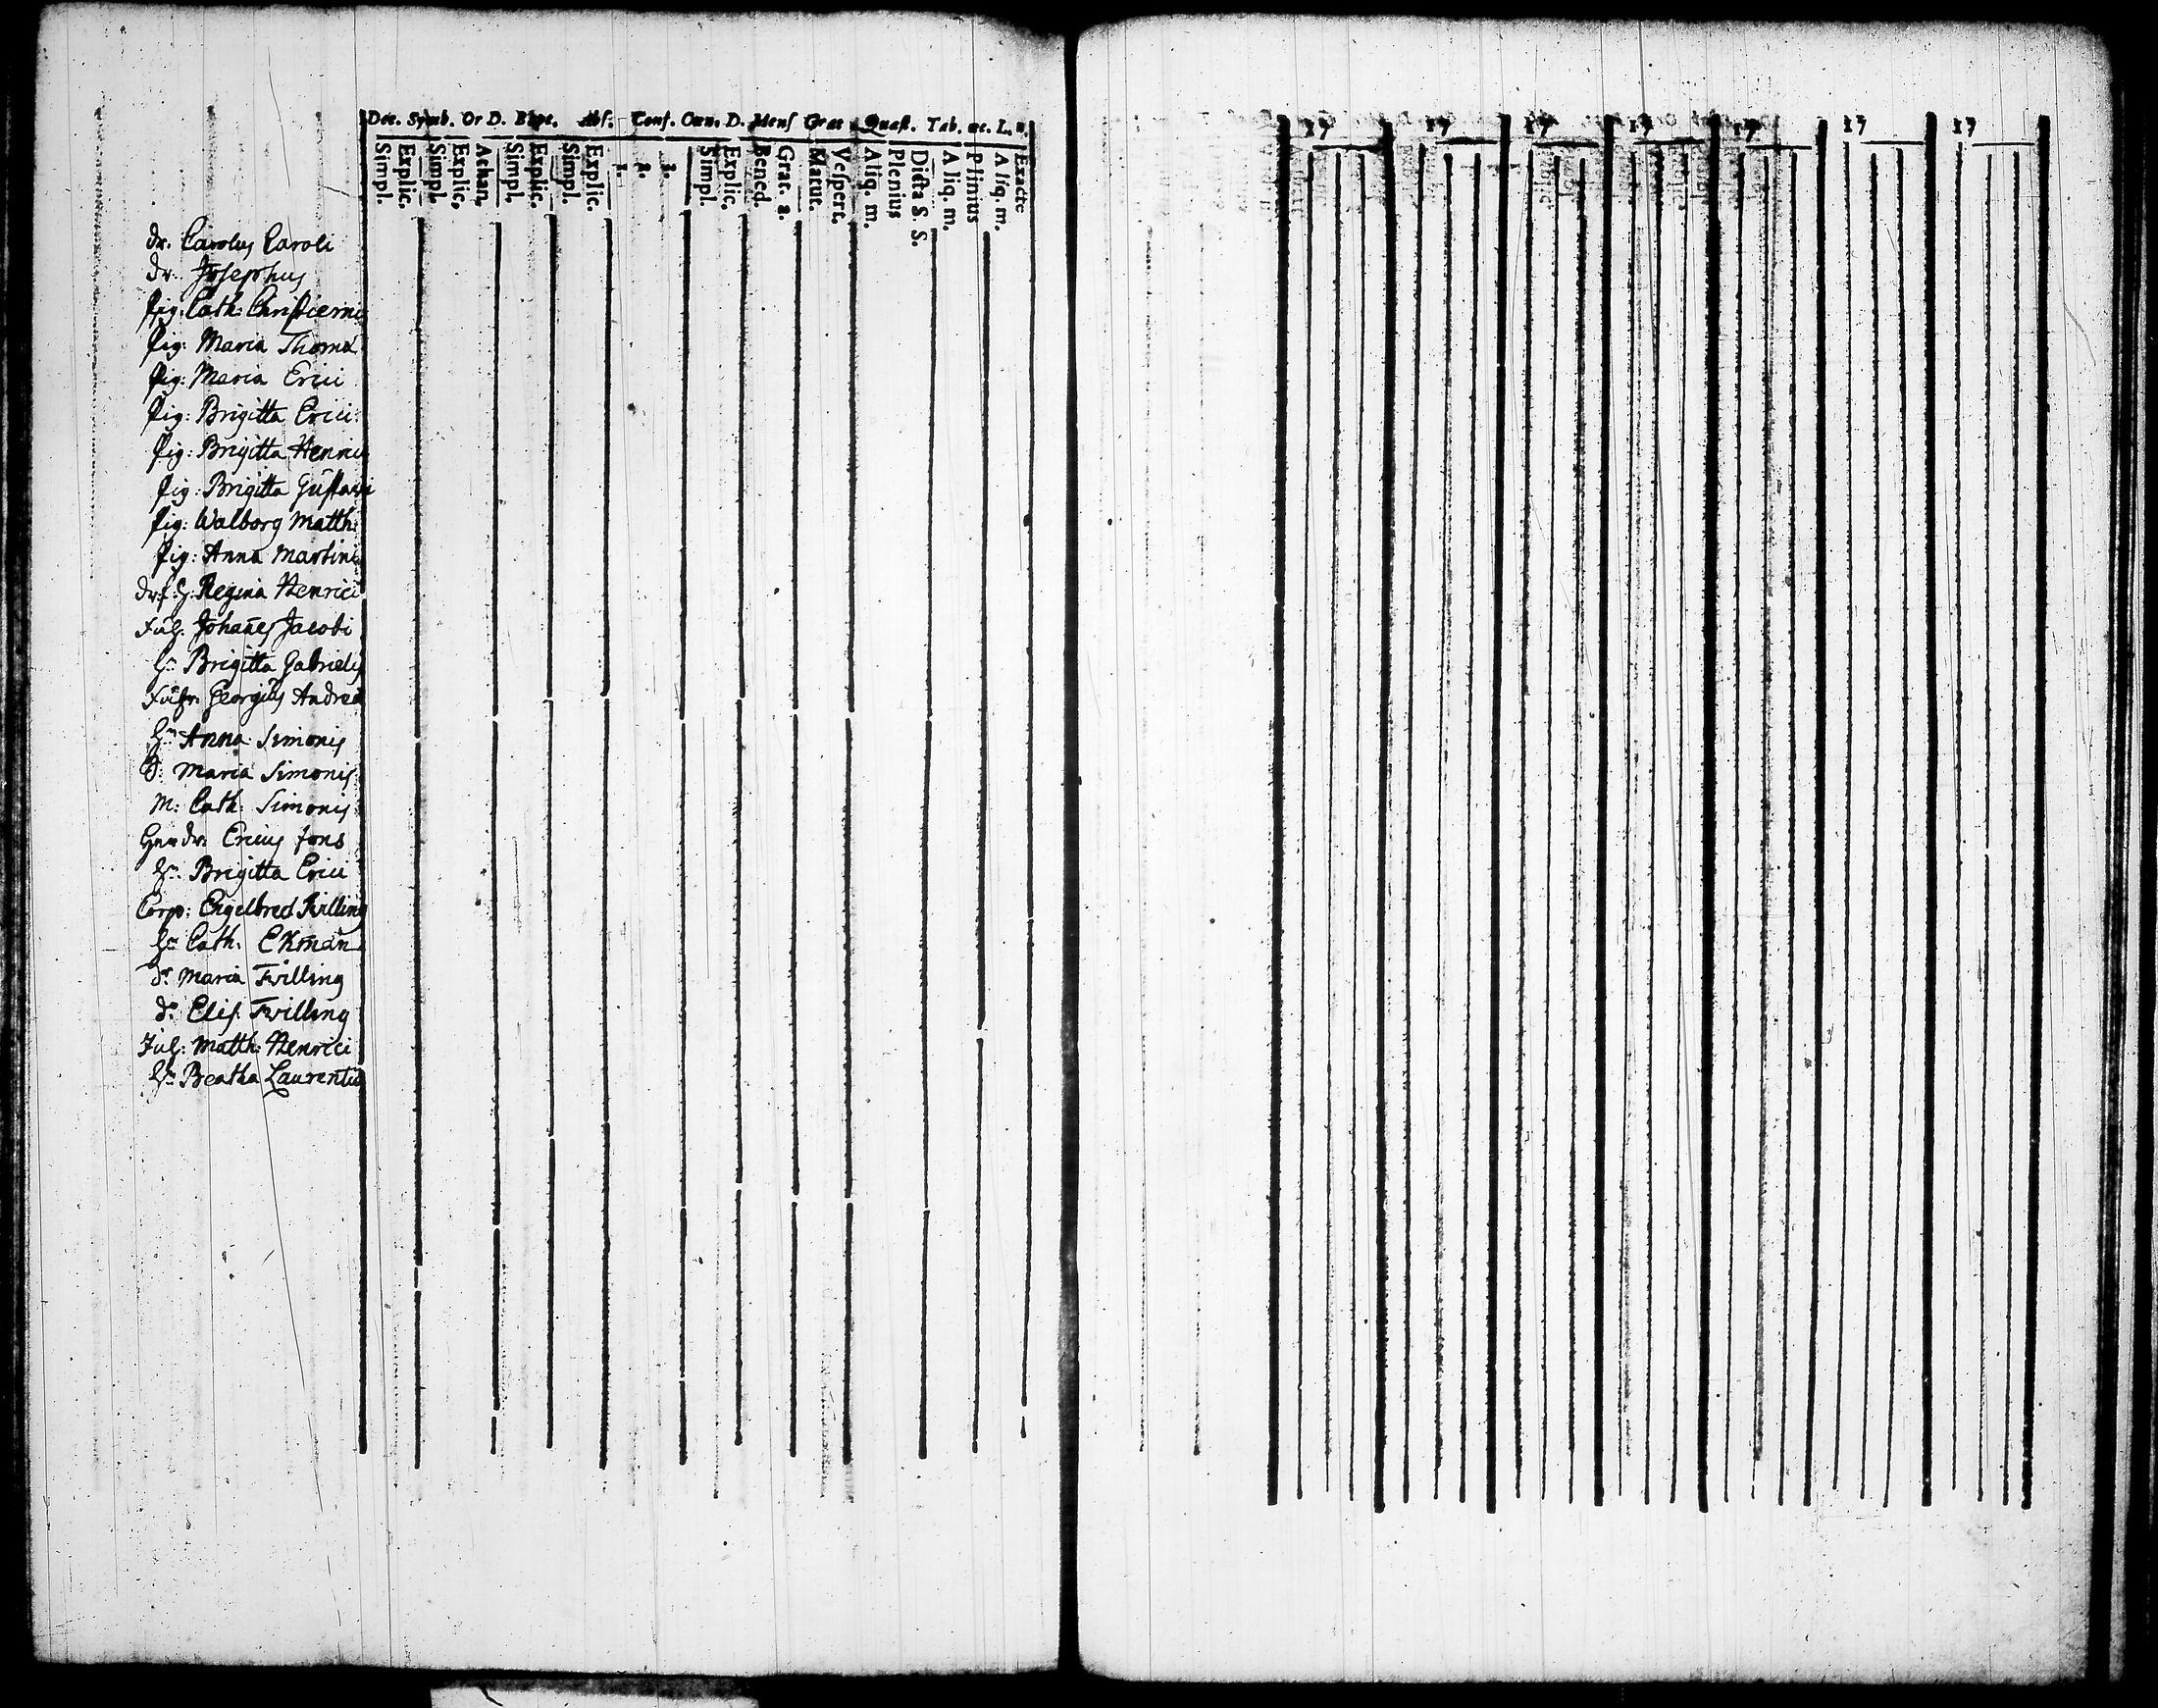 Dec. Symb. Or D. Bapt. Abs. Conf. Cœn. D. Mens Grat Quæst. Tab. œc. L. n.
Simpl. Explic. Simpl. Explic. Athan. Simpl. Explic. Simpl. Explic. 1. 2. 3. Simpl. Explic. Bened. Grat. a. Matut. Vespert. Aliq. m. Plenius Dicta S. S. Aliq. m. Plinius Aliq. m. Exacte
17 17 17 17 17 17 17
dr. Carolus Caroli
dr. Josephus
pig: Cath: Christierni
pig: Maria Thomæ
pig: Maria Erici
pig: Brigitta Erici
pig: Brigitta Henrici
pig: Brigitta Gustavi
pig: Walborg Matth:
pig: Anna Martini
Regina Henrici
Johanes Jacobi
Brigitta Gabrielis
Georgius Andreæ
Anna Simonis
Maria Simonis
M: Cath: Simonis
Ericus
Brigitta Erici
Corp: Engelbred Frilling
Cath: Ekman
Maria Frilling
Elis. Frilling
Matth: Henrici
Beatha Laurentii